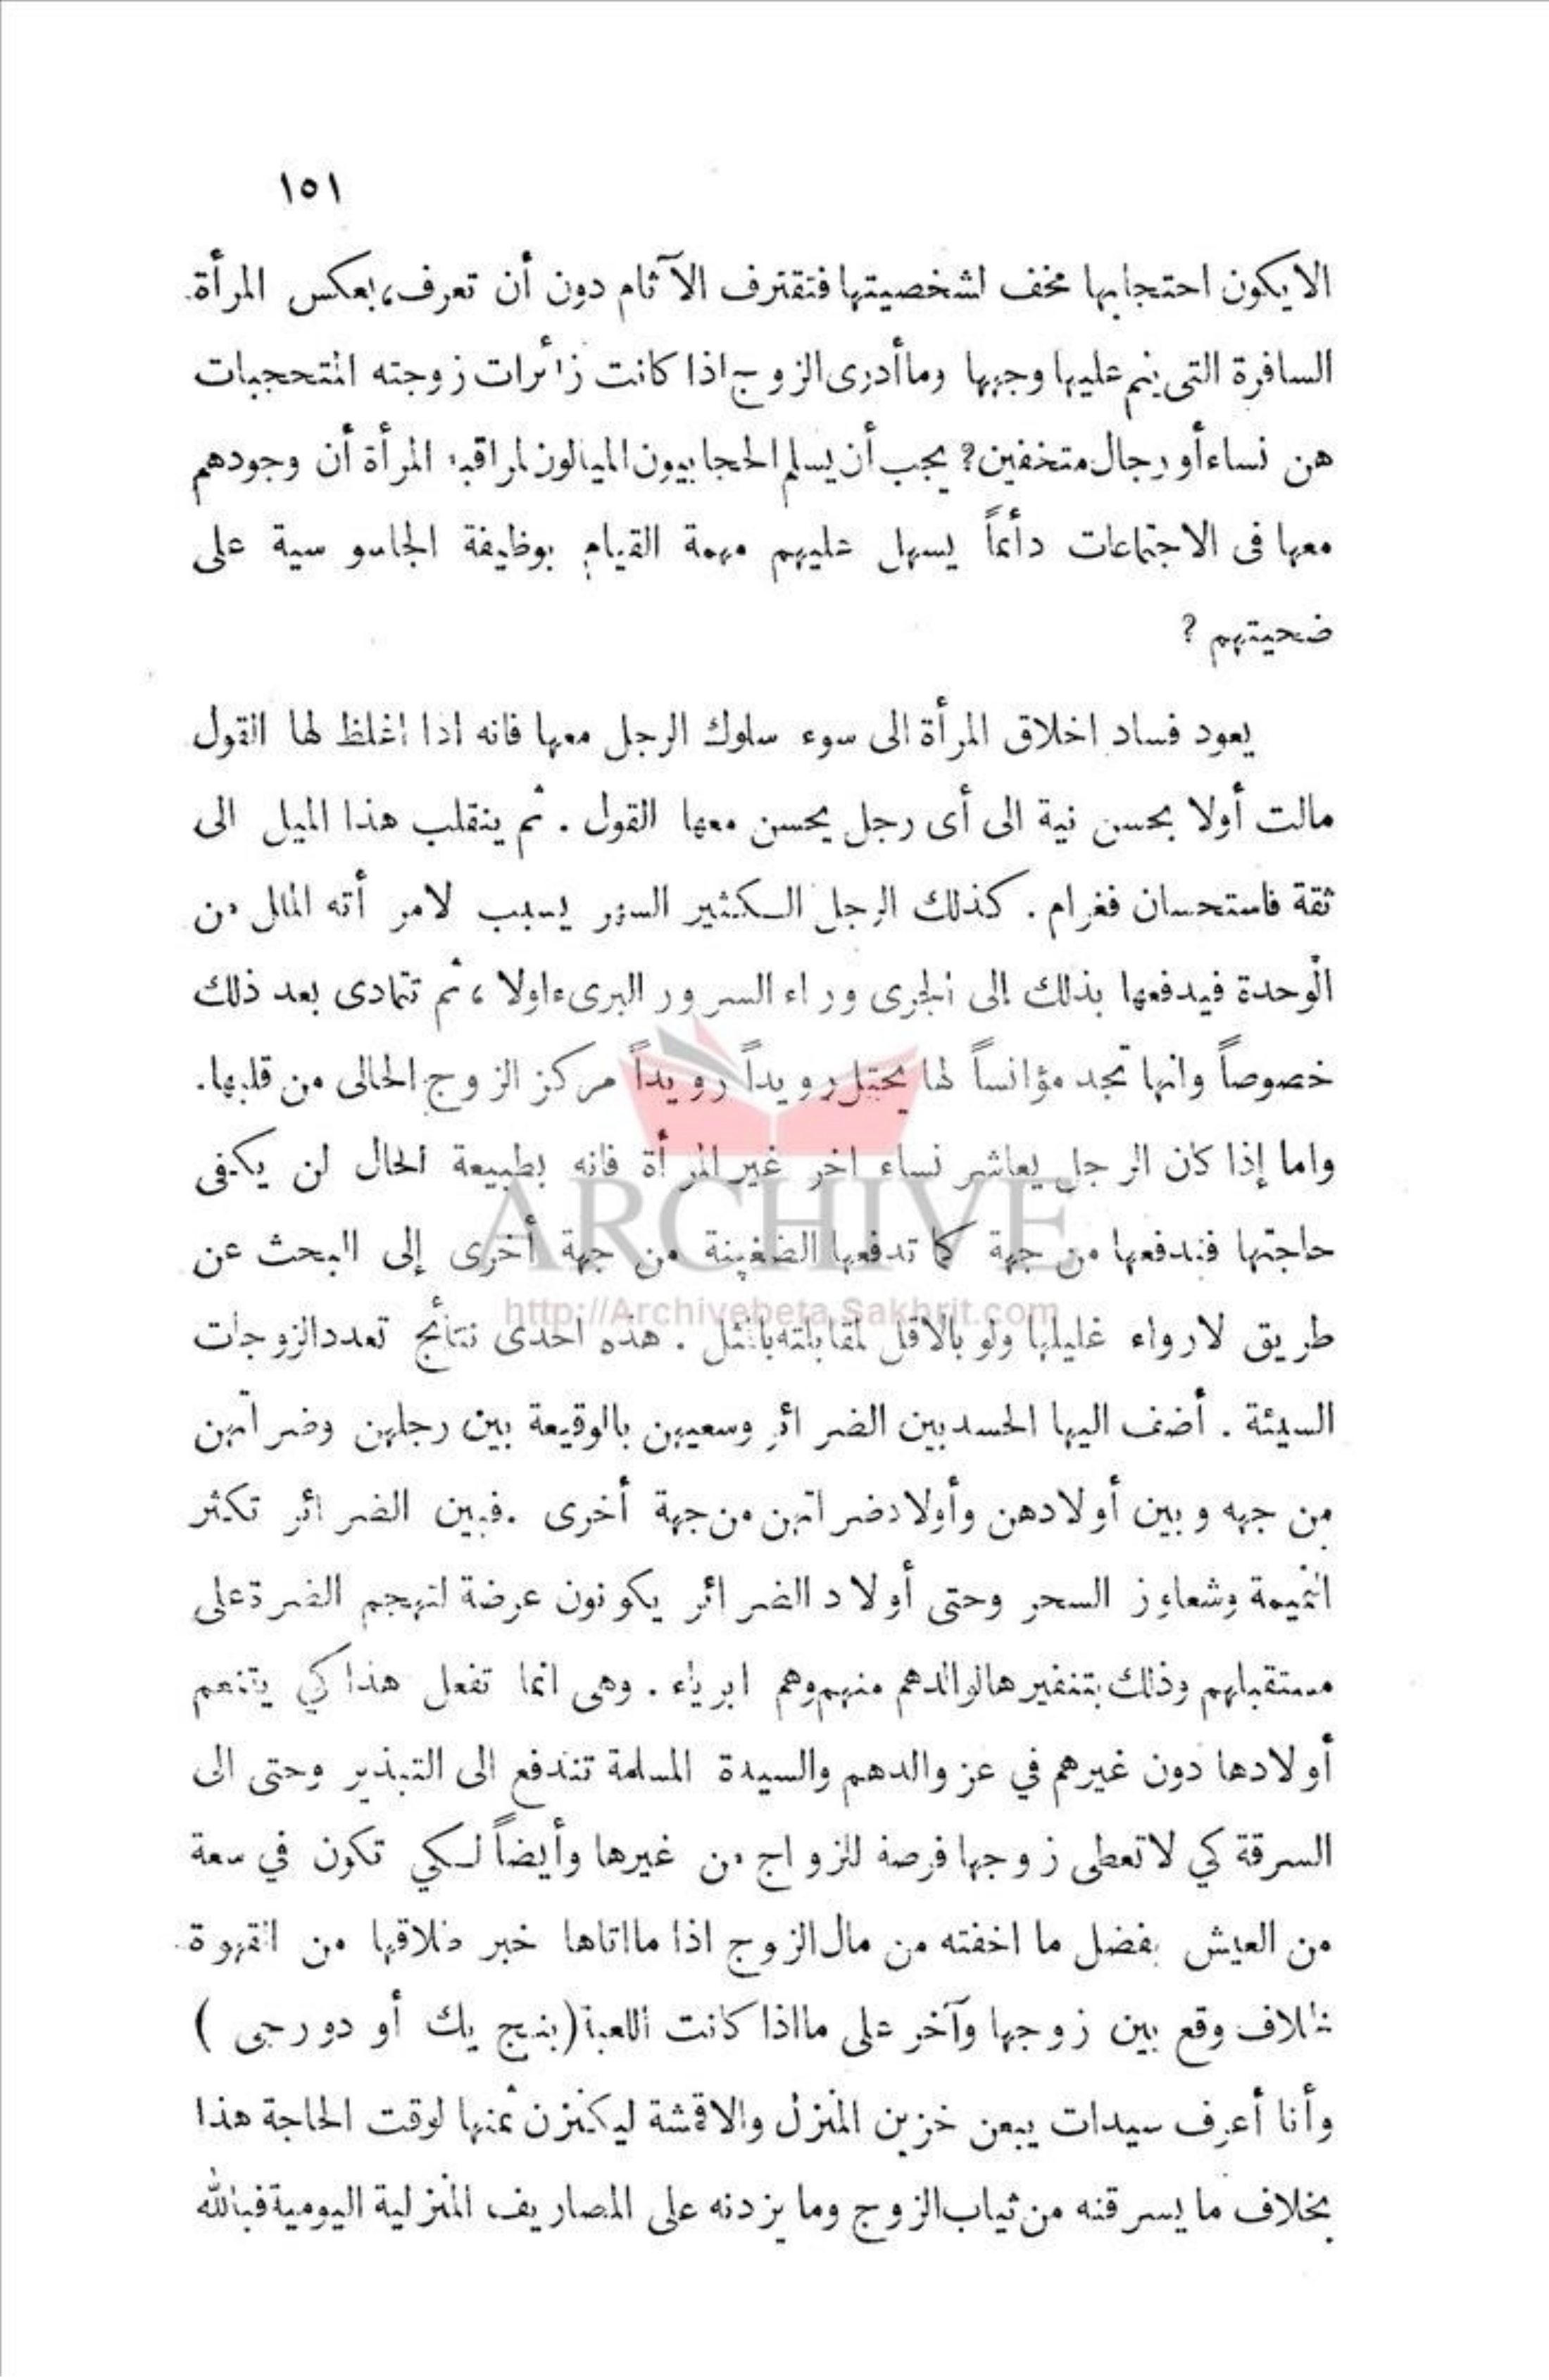 ١٥١
الا يكون احتجابها مخف لشخصيتها فتقترف الآثام دون أن تعرف، بعكس المرأة
السافرة التى ينم عليها وجهها وما أدرى الزوج اذا كانت زائرات زوجته المتحجبات
هن نساء أو رجال متخفين؟ يجب أن يسلم الحجابيون الميالون لمراقبة المرأة أن وجودهم
معها فى الاجتماعات دائماً يسهل عليهم مهمة القيام بوظيفة الجاسوسية على
ضحيتهم ؟
يعود فساد اخلاق المرأة الى سوء سلوك الرجل معها فانه اذا اغلظ لها القول
مالت أولا بحسن نية الى أى رجل يحسن معها القول . ثم ينقلب هذا الميل الى
ثقة فاستحسان فغرام . كذلك الرجل الكثير السهر يسبب لامرأته الملل من
الوحدة فيدفعها بذلك إلى الجرى وراء السرور البرىء اولا ، ثم تتمادى بعد ذلك
خصوصاً وانها تجد مؤانساً لها يحتل رويداً رويداً مركز الزوج الحالى من قلبها.
واما إذا كان الرجل يعاشر نساء اخر غير المرأة فانه بطبيعة الحال لن يكفى
حاجتها فندفعها من جهة كما تدفعها الضغينة من جهة أخرى إلى البحث عن
ARCHIVE
http://Archivebeta.Sakhrit.com
طريق لارواء غليلها ولو بالاقل لمقابلته بالمثل . هذه احدى نتائج تعدد الزوجات
السيئة . أضف اليها الحسد بين الضرائر وسعيهن بالوقيعة بين رجلهن وضراتهن
من جهه وبين أولادهن وأولاد ضراتهن من جهة أخرى . فبين الضرائر تكثر
النميمة وشعاوز السحر وحتى أولاد الضرائر يكونون عرضة لتهجم الضرة على
مستقبلهم وذلك بتنفيرها لوالدهم منهم وهم ابرياء . وهى انما تفعل هذا كي يتنعم
أولادها دون غيرهم في عز والدهم والسيدة المسلمة تندفع الى التبذير وحتى الى
السرقة كي لا تعطى زوجها فرصة للزواج من غيرها وأيضاً لكي تكون في سعة
من العيش بفضل ما اخفته من مال الزوج اذا ما اتاها خبر طلاقها من القهوة
لخلاف وقع بين زوجها وآخر على ما اذا كانت اللعبة (بنج يك أو دورجى )
وأنا أعرف سيدات يبعن خزين المنزل والاقمشة ليكنزن ثمنها لوقت الحاجة هذا
بخلاف ما يسرقنه من ثياب الزوج وما يزدنه على المصاريف المنزلية اليومية فبالله